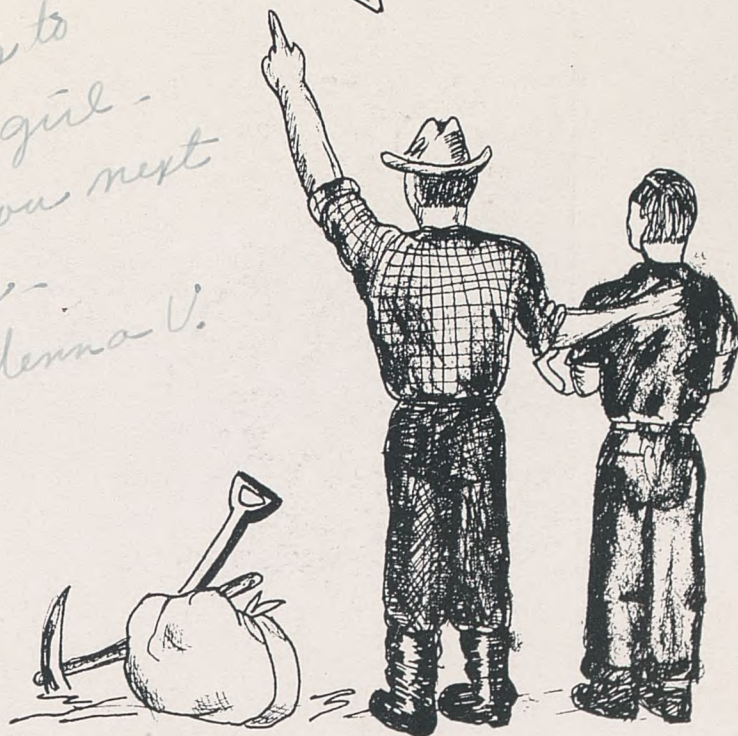 to
girl -
you next
Glenna V.